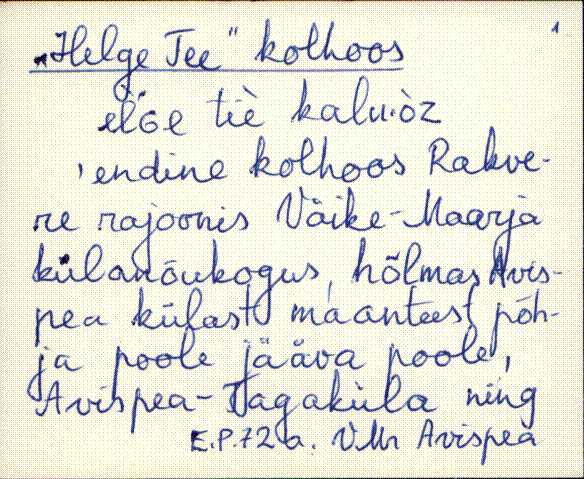 1
„Helge Tee" kolhoos
elGe tiè kalu·òz
'endine kolhoos Rakve-
re rajoonis Väike-Maarja
külanõukogus, hõlmas Avis-
pea külast maanteest põh-
ja poole jääva poole,
Avispea-Tagaküla ning
E.P.72 a. VMr Avispea